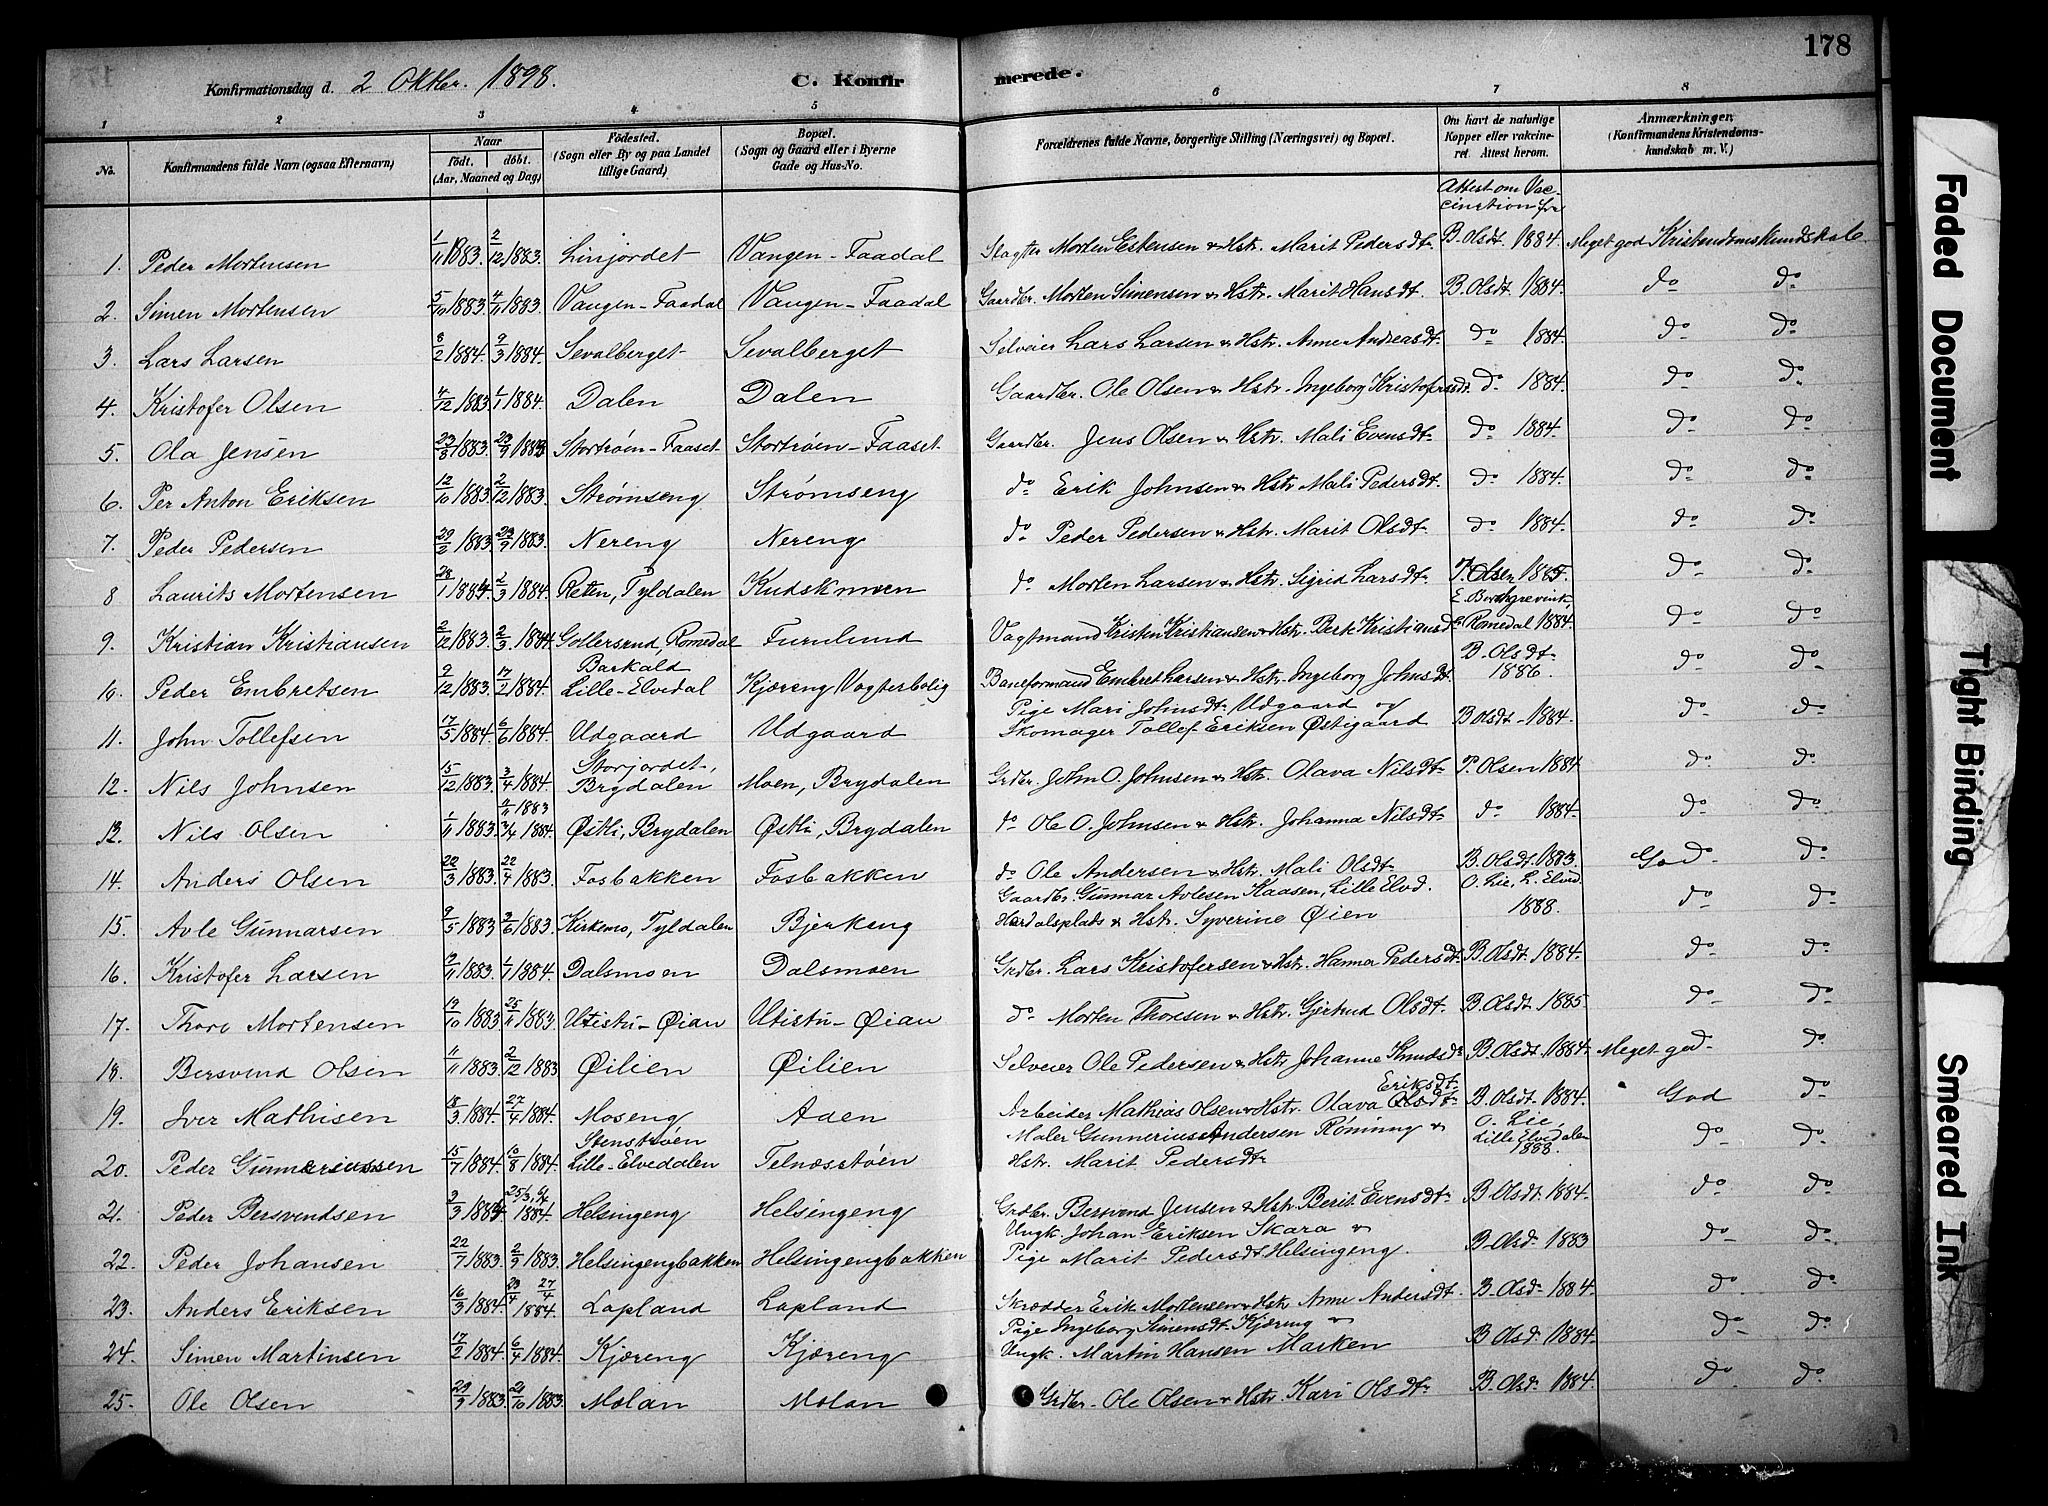 178
Konfirmationsdag d. 2 Oktbr. 1898.
C. Konfirmerede.
1 2 3 4 5 6 7 8
No. Konfirmandens fulde Navn (ogsaa Efternavn) Naar født. døbt. (Aar, Maaned og Dag) Fødested. (Sogn eller By og paa Landet tillige Gaard) Bopæl. (Sogn og Gaard eller i Byerne Gade og Hus-No. Forældrenes fulde Navne, borgerlige Stilling (Næringsvei) og Bopæl. Om havt de naturlige Kopper eller vakcineret. Attest herom. Anmærkninger. (Konfirmandens Kristendomskundskab m. V.)
Attest om Vaccination fra
1. Peder Mortensen 1/11 1883. 2/12 1883. Linjordet Vangen-Faadal Morten Estensen & Hstr. Marit Pedersdt. B. Olsdt. 1884. Meget god Kristendomskundskab.
2. Simen Mortensen 5/10 1883. 4/11 1883. Vangen-Faadal Vangen-Faadal Gaardbr. Morten Simensen & Hstr. Marit Hansdt. B. Olsdt. 1884. do do
3. Lars Larsen 8/2 1884. 9/3 1884. Sevalberget Sevalberget Selveier Lars Larsen & Hstr. Anne Andreasdt. do 1884. do do
4. Kristofer Olsen 4/12 1883. 1/1 1884. Dalen Dalen Gaardbr. Ole Olsen & Hstr. Ingeborg Kristofersdt. do 1884. do do
5. Ola Jensen 23/8 1883. 23/9 1883. Stortrøen-Faaset Stortrøen-Faaset Gaardbr. Jens Olsen & Hstr. Mali Evensdt. do 1884. do do
6. Per Anton Eriksen 12/10 1883. 2/12 1883. Strømseng Strømseng do Erik Johnsen & Hstr. Mali Pedersdt. do 1884. do do
7. Peder Pedersen 29/2 1883. 23/9 1883. Nereng Nereng do Peder Pedersen & Hstr. Marit Olsdt. do 1884. do do
8 Laurits Mortensen 28/1 1884. 2/3 1884. Reten, Tyldalen Kudskmoen do Morten Larsen & Hstr. Sigrid Larsdt. P. Olsen 1885. do do
9. Kristian Kristiansen 2/12 1883. 2/3 1884 Gollersrud, Romedal Furulund Vagtmand Kristen Kristiansen & Hstr. Berte Kristiansdt. E. Romedal 1884. do do
10. Peder Embretsen 9/12 1883. 17/2 1884. Barkald Lille-Elvedal Kjæreng Vogterbolig Baneformand Embret Larsen & Hstr. Ingeborg Johnsdt. B. Olsdt. 1886. do do
11. John Tollefsen 17/5 1884. 6/6 1884. Udgaard Udgaard Pige Mari Johnsdt. Udgaard og Skomager Tollef Eriksen Østigaard B. Olsdt. 1884. do do
12. Nils Johnsen 15/12 1883. 3/4 1884. Storjordet, Brydalen Moen, Brydalen Grdbr. John O. Johnsen & Hstr. Olava Nilsdt. P. Olsen 1884 do do
13. Nils Olsen 1/11 1883. 11/11 1883 1884. Østli, Brydalen Østli, Brydalen do Ole O. Johnsen & Hstr. Johanna Nilsdt. do 1884. do do
14. Anders Olsen 22/3 1883. 22/4 1883. Fosbakken Fosbakken do Ole Andersen & Hstr. Mali Olsdt. B. Olsdt. 1883. God do
15. Avle Gunnarsen 9/5 1883 3/6 1883. Kirkemo, Tyldalen Bjerkeng Gaardbr. Gunnar Avlesen Kaasen, Lille Elvd. Hordalsplads & Hstr. Syverine Øien O. Lie, L. Elvd. 1888. do do
16. Kristofer Larsen 9/11 1883. 1/1 1884. Dalsmoen Dalsmoen Grdbr. Lars Kristofersen & Hstr. Hanna Pedersdt. B. Olsdt. 1884. do do
17. Thore Mortensen 19/10 1883. 25/11 1883. Utistu-Øian Utistu-Øian do Morten Thoresen & Hstr. Gjertrud Olsdt. B. Olsdt. 1885 do do
18. Bersvend Olsen 11/11 1883. 2/12 1883 Øilien Øilien Selveier Ole Pedersen & Hstr. Johanne Knudsdt. B. Olsdt. 1884. Meget god do
19. Iver Mathisen 18/3 1884. 27/4 1884. Moseng Aaen Arbeider Mathias Olsen & Hstr. Olava Olsdt. Eriksdt. B. Olsdt. 1884. God do
20. Peder Gunnariussen 15/7 1884. 10/8 1884. Stenstrøen Lille-Elvedalen Telnæsstøen Maler Gunnerius Andersen Rønning & Hstr. Marit Pedersdt. O. Lie, Lille Elvedalen 1888. do do
21. Peder Bersvendsen 3/3 1884. 25/3, 1884. Helsingeng Helsingeng Grdbr. Bersvend Jensen & Hstr. Berit Evensdt. B. Olsdt. 1884. do do
22. Peder Johansen 22/7 1883. 2/9 1883. Helsingengbakken Helsingengbakken Ungk. Johan Eriksen Skara & Pige Marit Pedersdt. Helsingeng. B. Olsd. 1883 do do
23. Anders Eriksen 16/3 1884. 23/4 27/4 1884. Lapland Lapland Skrædder Erik Mortensen & Hstr. Anne Andersdt. B. Olsd. 1884 do do
24. Simen Martinsen 17/2 1884. 6/4 1884. Kjæreng Kjæreng Pige Ingeborg Simensdt. Kjæreng & Ungk. Martin Hansen Marken B. Olsd. 1884. do do
25. Ole Olsen 29/9 1883. 21/10 1883. Molan Molan Grdbr. Ole Olsen & Hstr. Kari Olsdt. B. Olsd. 1884. do do
Faded Document
Tight Binding
Smeared Ink